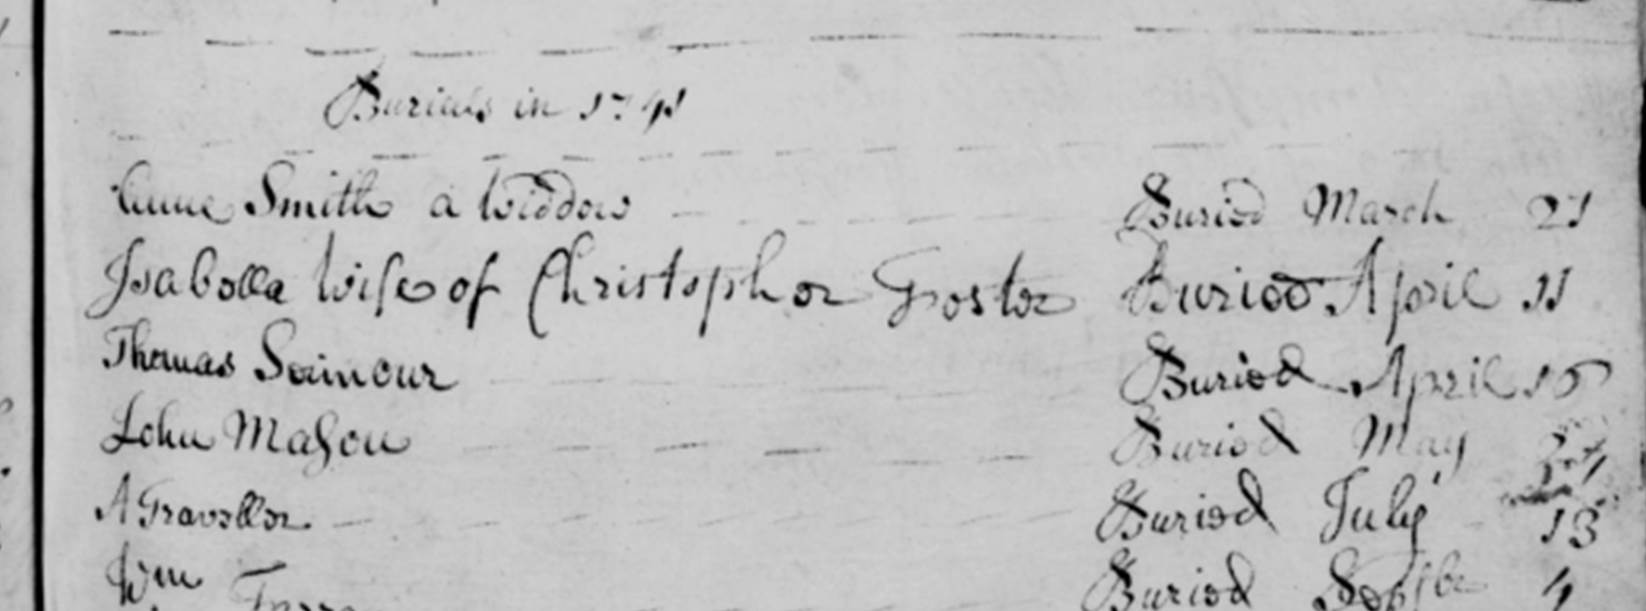 Burials in 1741
Anne Smith a Widdow Buried March 21
Isabella Wife of Christopher Froster Buried April 11
Thomas Seimour Buried April 15
John Mason Buried May
A Traveller Buried July 13
Wm Buried Septbr 4